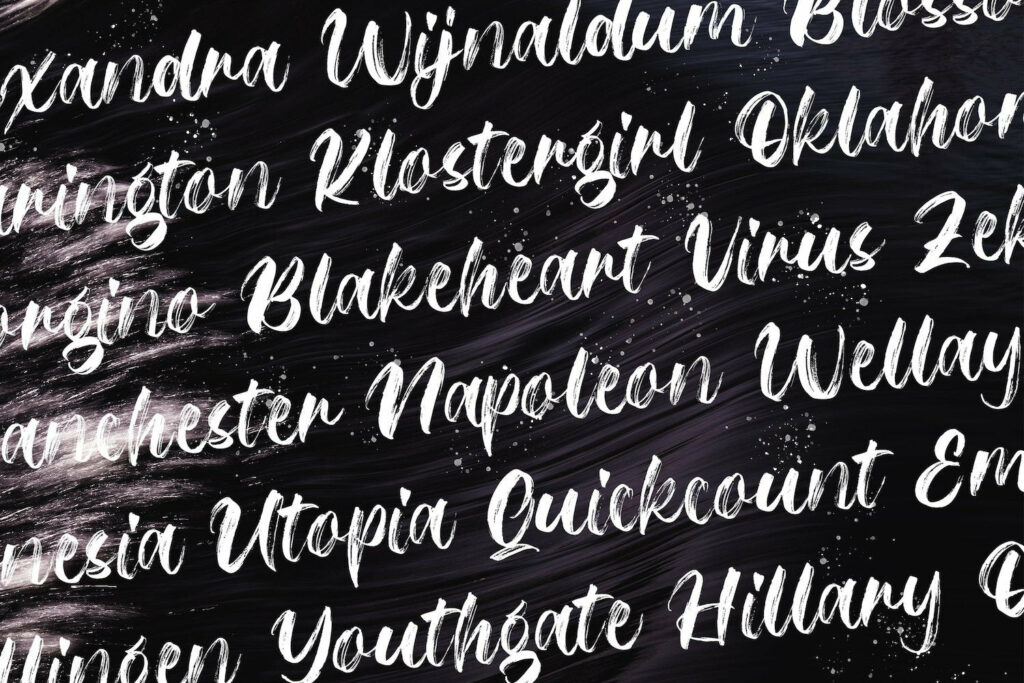 xandra Wijnaldum Blosso
arington Klostergirl Oklahom
orgino Blakeheart Virus Zek
anchester Napoleon Wellay
nesia Utopia Quickcount Em
llingen Youthgate Hillary